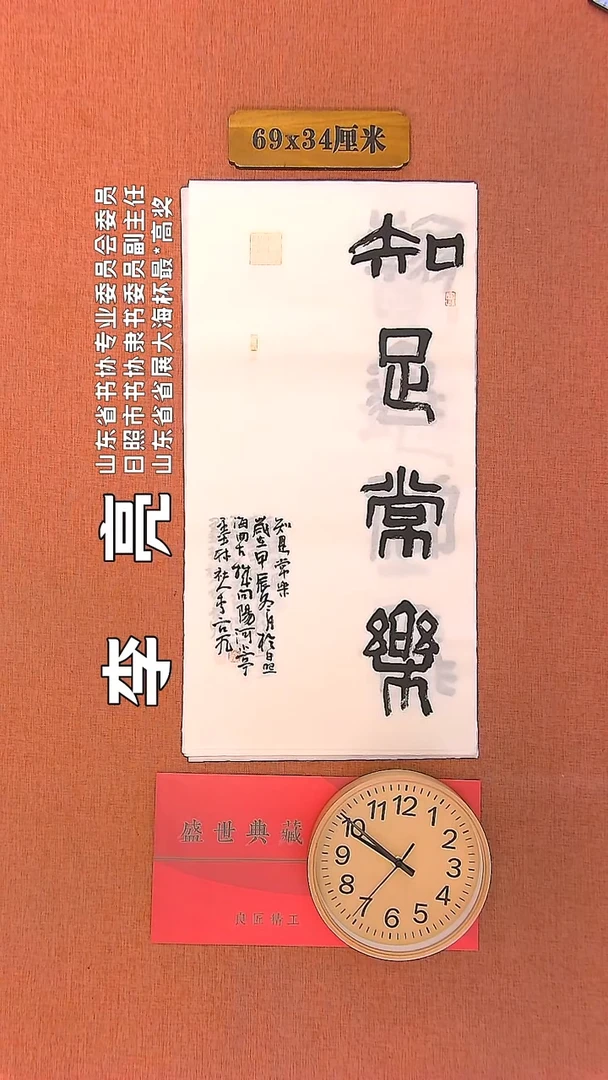 69x34厘米
知足常樂
知足常乐
歲在甲辰冬月於日照
李 亮
山东省书协专业委员会委员
日照市书协隶书委员副主任
山东省省展大海杯最*高奖
盛世典藏
良匠精工
12
1
2
3
4
5
6
7
8
9
10
11